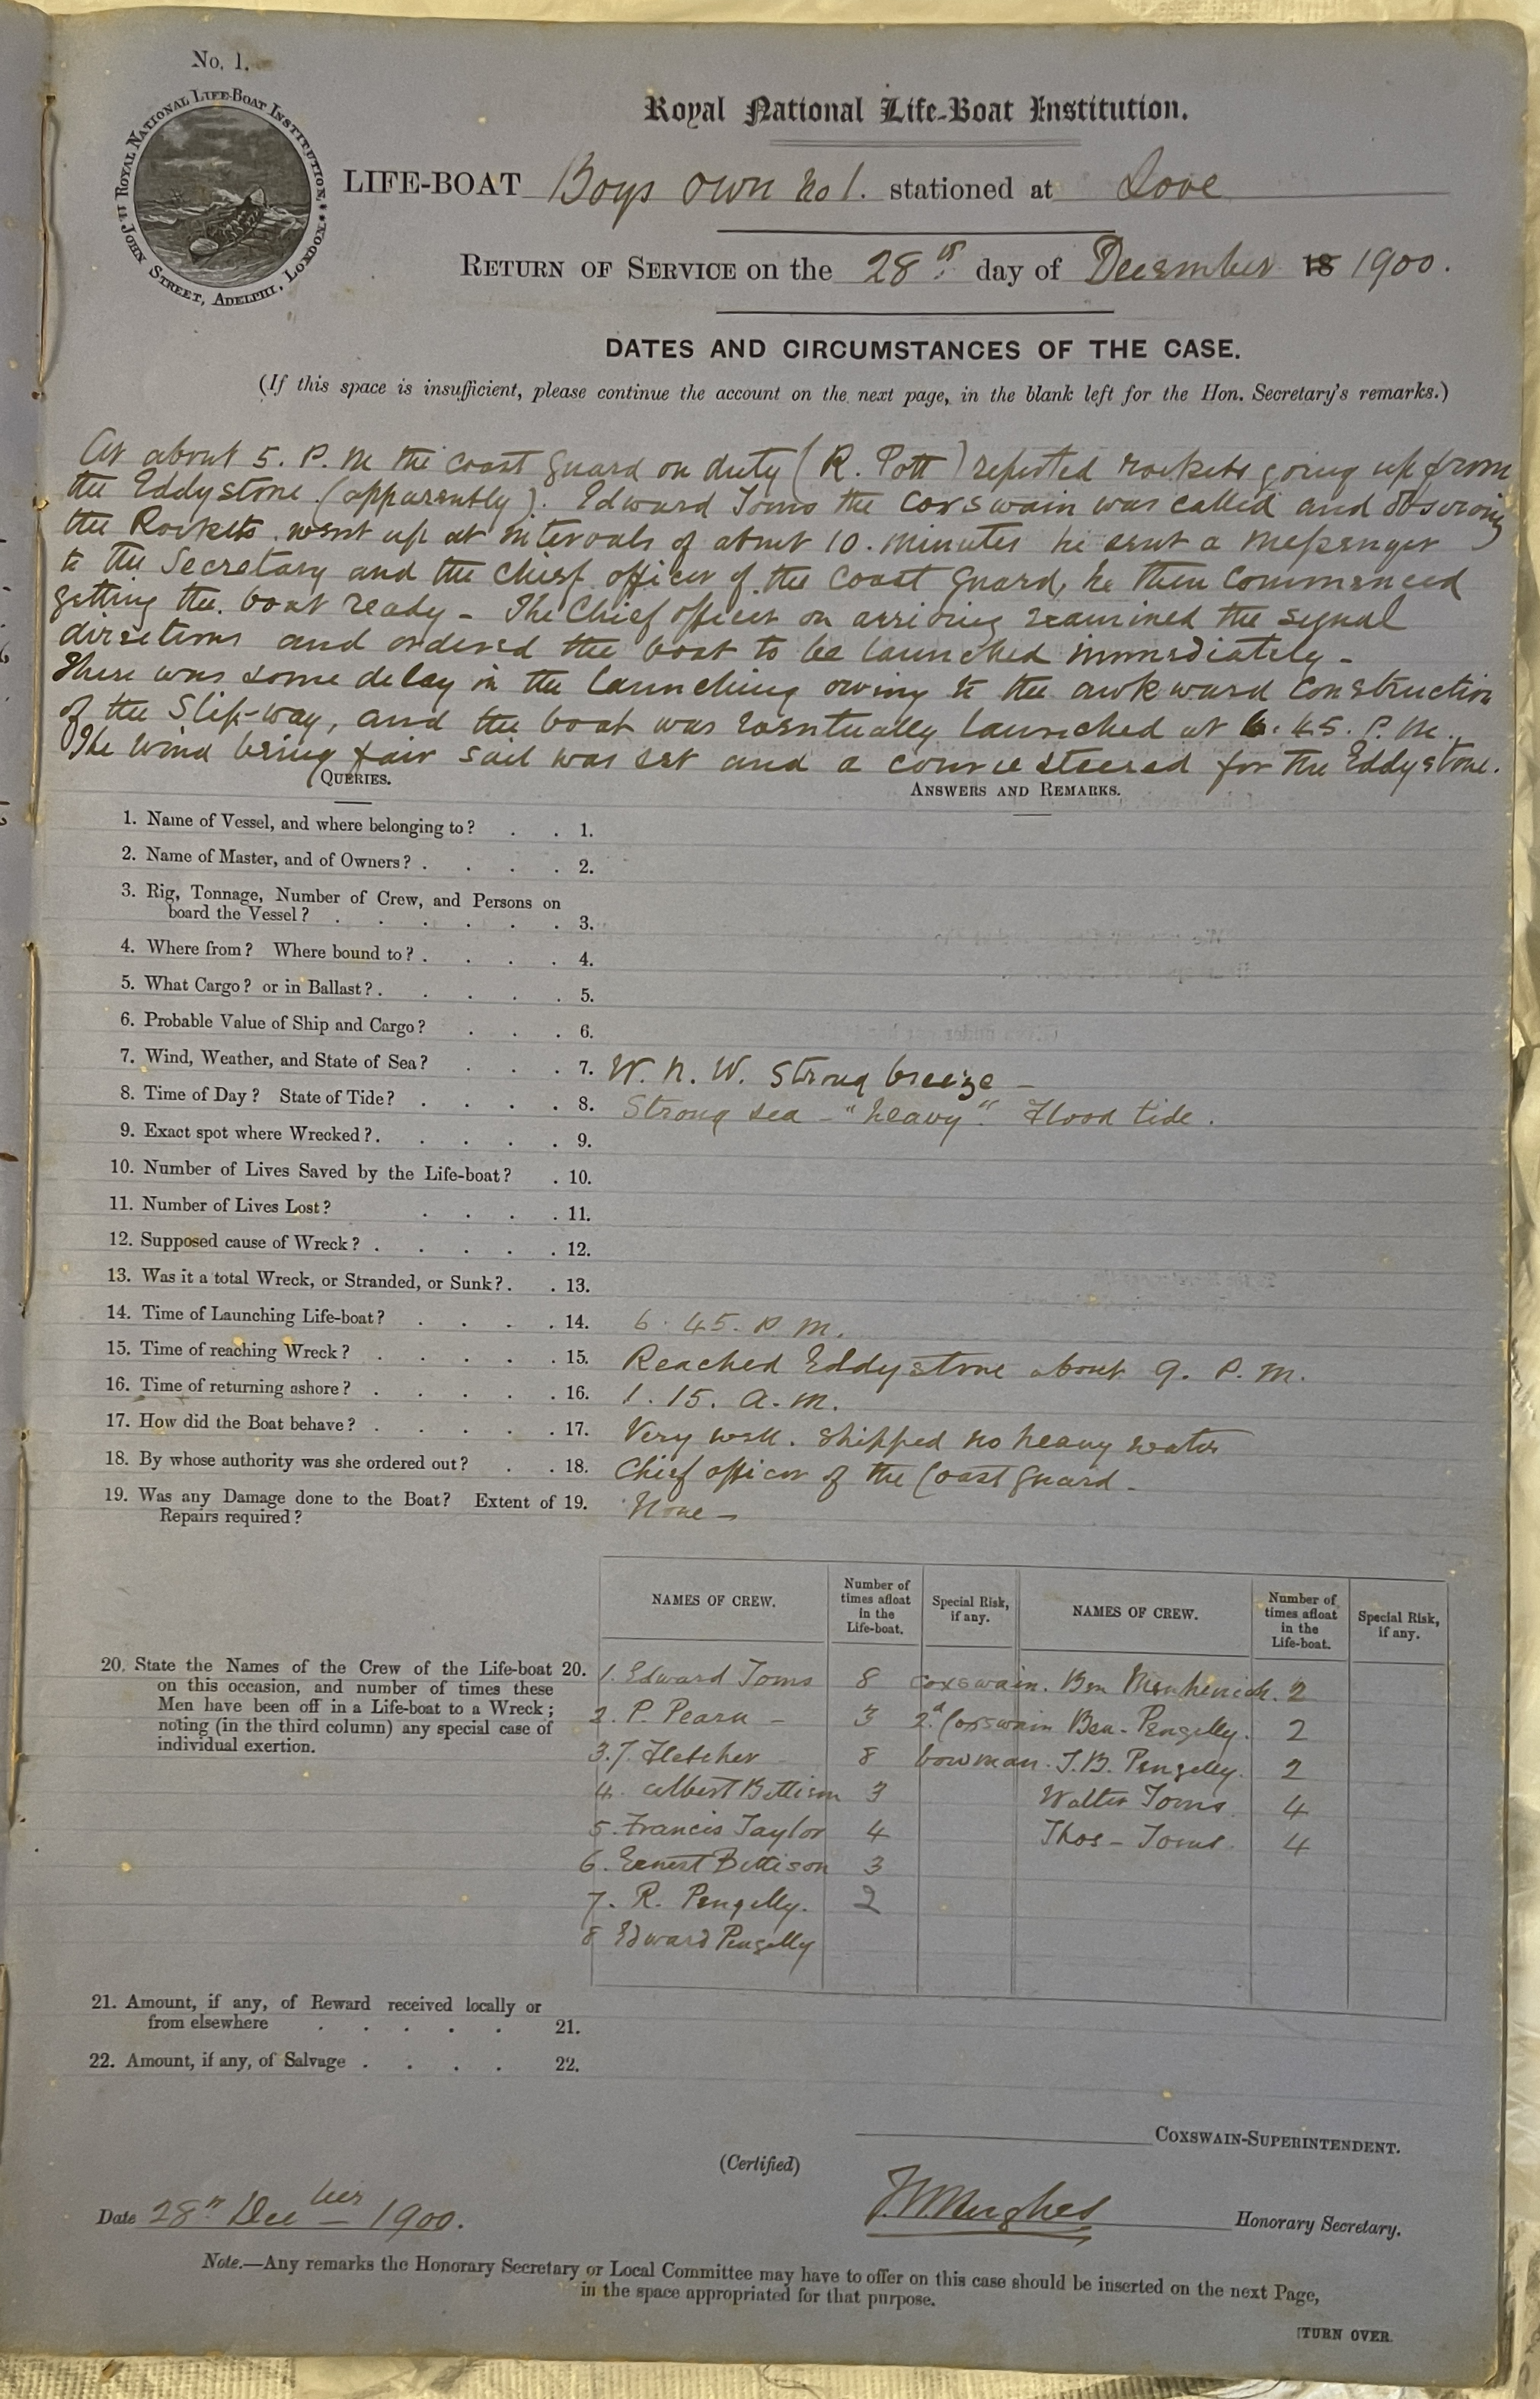 No. 1.
ROYAL NATIONAL LIFE-BOAT INSTITUTION
JOHN STREET, ADELPHI, LONDON.
Royal National Life-Boat Institution.
LIFE-BOAT Boys own No 1. stationed at Looe
RETURN OF SERVICE on the 28th day of December 18 1900.
DATES AND CIRCUMSTANCES OF THE CASE.
(If this space is insufficient, please continue the account on the next page, in the blank left for the Hon. Secretary's remarks.)
At about 5. P. M the coast guard on duty (R. Pott) reported rockets going up from
the Eddystone (apparently). Edward Toms the Coxswain was called and observing
the Rockets went up at intervals of about 10. minutes he sent a messenger
to the Secretary and the Chief officer of the Coast Guard, he then commenced
getting the boat ready - The Chief officer on arriving examined the signal
directions and ordered the boat to be launched immediately -
There was some delay in the launching owing to the awkward construction
of the Slip-way, and the boat was eventually launched at 6. 45. P. M.
The wind being fair sail was set and a course steered for the Eddystone.
QUERIES.
ANSWERS AND REMARKS.
1. Name of Vessel, and where belonging to? . . 1.
2. Name of Master, and of Owners? . . . . 2.
3. Rig, Tonnage, Number of Crew, and Persons on
board the Vessel? . . . . . . 3.
4. Where from? Where bound to? . . . . 4.
5. What Cargo? or in Ballast? . . . . . 5.
6. Probable Value of Ship and Cargo? . . . 6.
7. Wind, Weather, and State of Sea? . . . 7. W. N. W. Strong breeze -
8. Time of Day? State of Tide? . . . . 8. Strong sea - "heavy". Flood tide.
9. Exact spot where Wrecked? . . . . . 9.
10. Number of Lives Saved by the Life-boat? . 10.
11. Number of Lives Lost? . . . . 11.
12. Supposed cause of Wreck? . . . . . 12.
13. Was it a total Wreck, or Stranded, or Sunk? . . 13.
14. Time of Launching Life-boat? . . . . 14. 6. 45. P. M.
15. Time of reaching Wreck? . . . . . 15. Reached Eddystone about 9. P. M.
16. Time of returning ashore? . . . . . 16. 1. 15. A. M.
17. How did the Boat behave? . . . . . 17. Very well. Shipped no heavy water
18. By whose authority was she ordered out? . . 18. Chief officer of the Coast Guard -
19. Was any Damage done to the Boat? Extent of 19. None -
Repairs required?
NAMES OF CREW. Number of times afloat in the Life-boat. Special Risk, if any. NAMES OF CREW. Number of times afloat in the Life-boat. Special Risk, if any.
20. State the Names of the Crew of the Life-boat 20.
on this occasion, and number of times these
Men have been off in a Life-boat to a Wreck;
noting (in the third column) any special case of
individual exertion.
1. Edward Toms 8 Coxswain. Ben Menhenick. 2
2. P. Pearn - 3 2d Coxswain Ben - Pengelly. 2
3. J. Fletcher - 8 bowman. J. B. Pengelly. 2
4. Albert Bettison 3 Walter Toms 4
5. Francis Taylor 4 Thos - Toms 4
6. Ernest Bettison 3
7. R. Pengelly. 2
8 Edward Pengelly
21. Amount, if any, of Reward received locally or
from elsewhere . . . . . 21.
22. Amount, if any, of Salvage . . . . 22.
COXSWAIN-SUPERINTENDENT.
(Certified)
Date 28th Decber 1900. Hughes Honorary Secretary.
Note.—Any remarks the Honorary Secretary or Local Committee may have to offer on this case should be inserted on the next Page,
in the space appropriated for that purpose.
[TURN OVER.